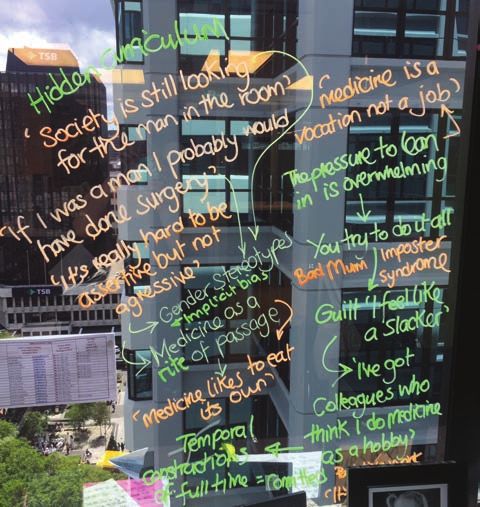 TSB
Hidden curriculum
'Society is still looking
for the man in the room'
'If I was a man I probably would
have done surgery'
'It's really hard to be
assertive but not
agressive'
TSB
Gender stereotypes
implicit bias
Medicine as a
rite of passage
'Medicine likes to eat
its own'
Temporal
constructions
of full time =
'medicine is a
vocation not a job'
The pressure to lean
in is overwhelming
You try to do it all
Bad Mum
Imposter
syndrome
Guilt 'I feel like
a 'slacker'
'I've got
Colleagues who
think I do medicine
as a hobby'